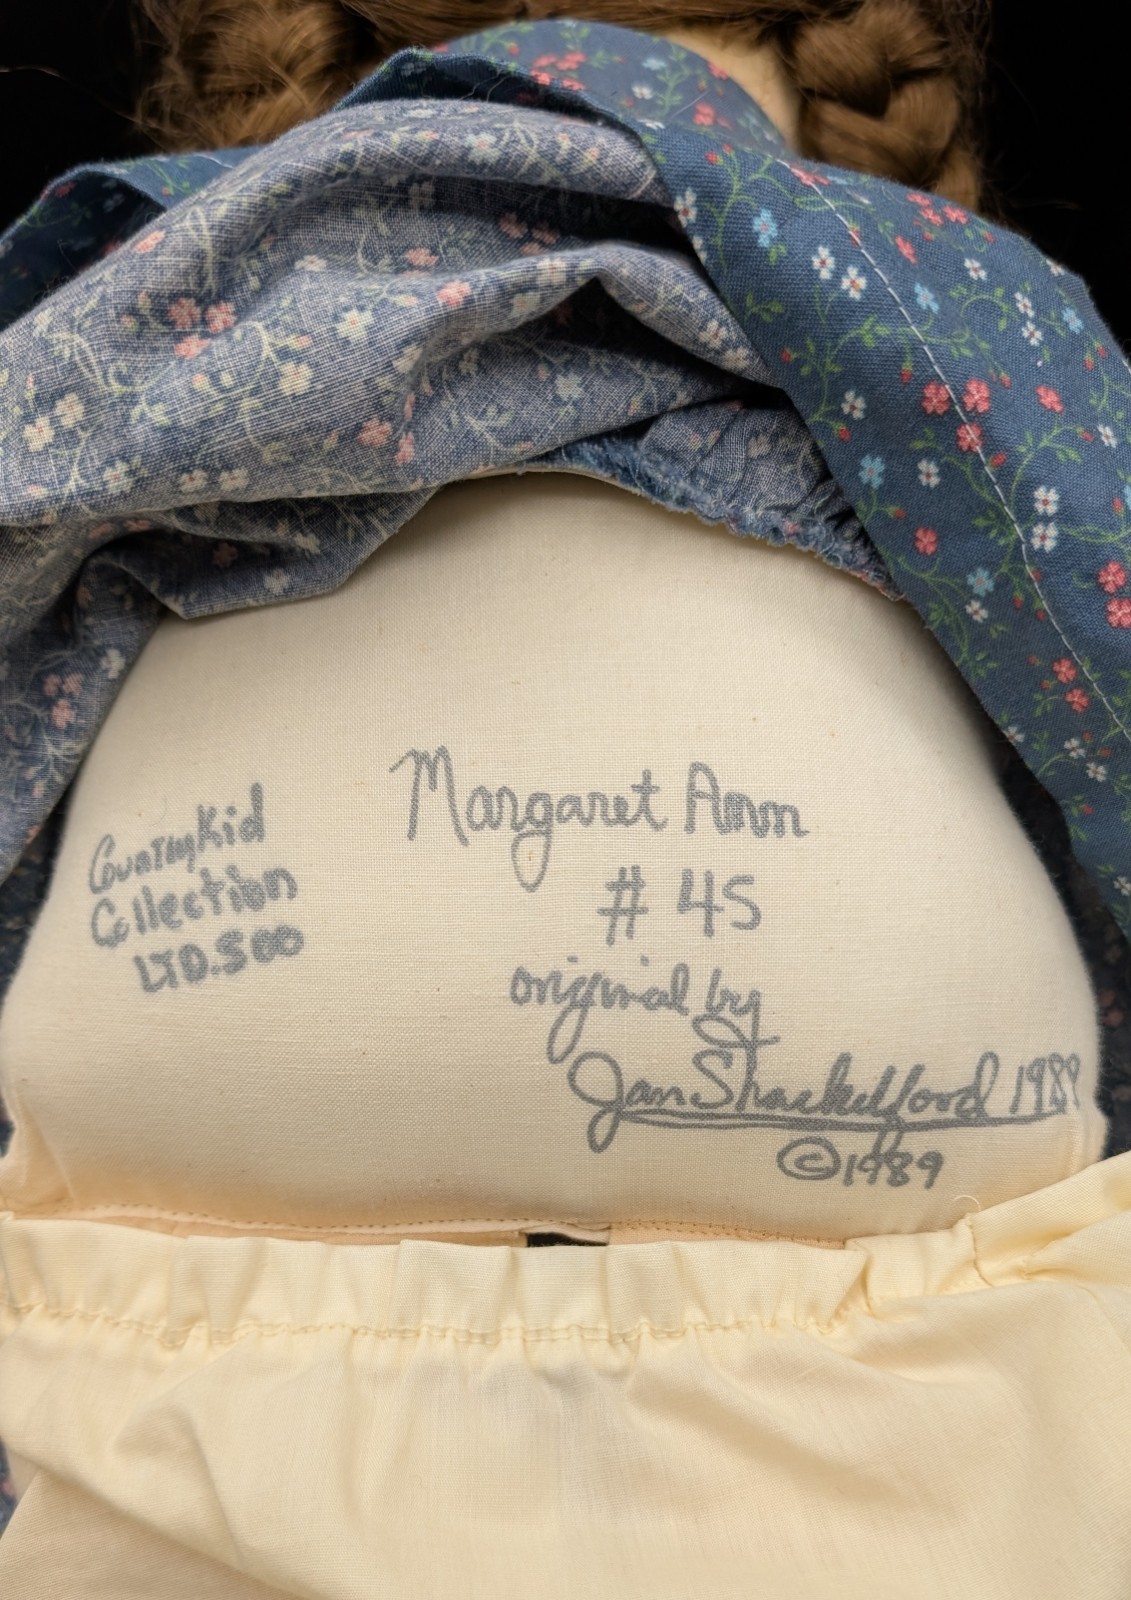 CountryKid
Collection
LTD.500
Margaret Ann
# 45
original by
Jan Shackelford 1989
©1989